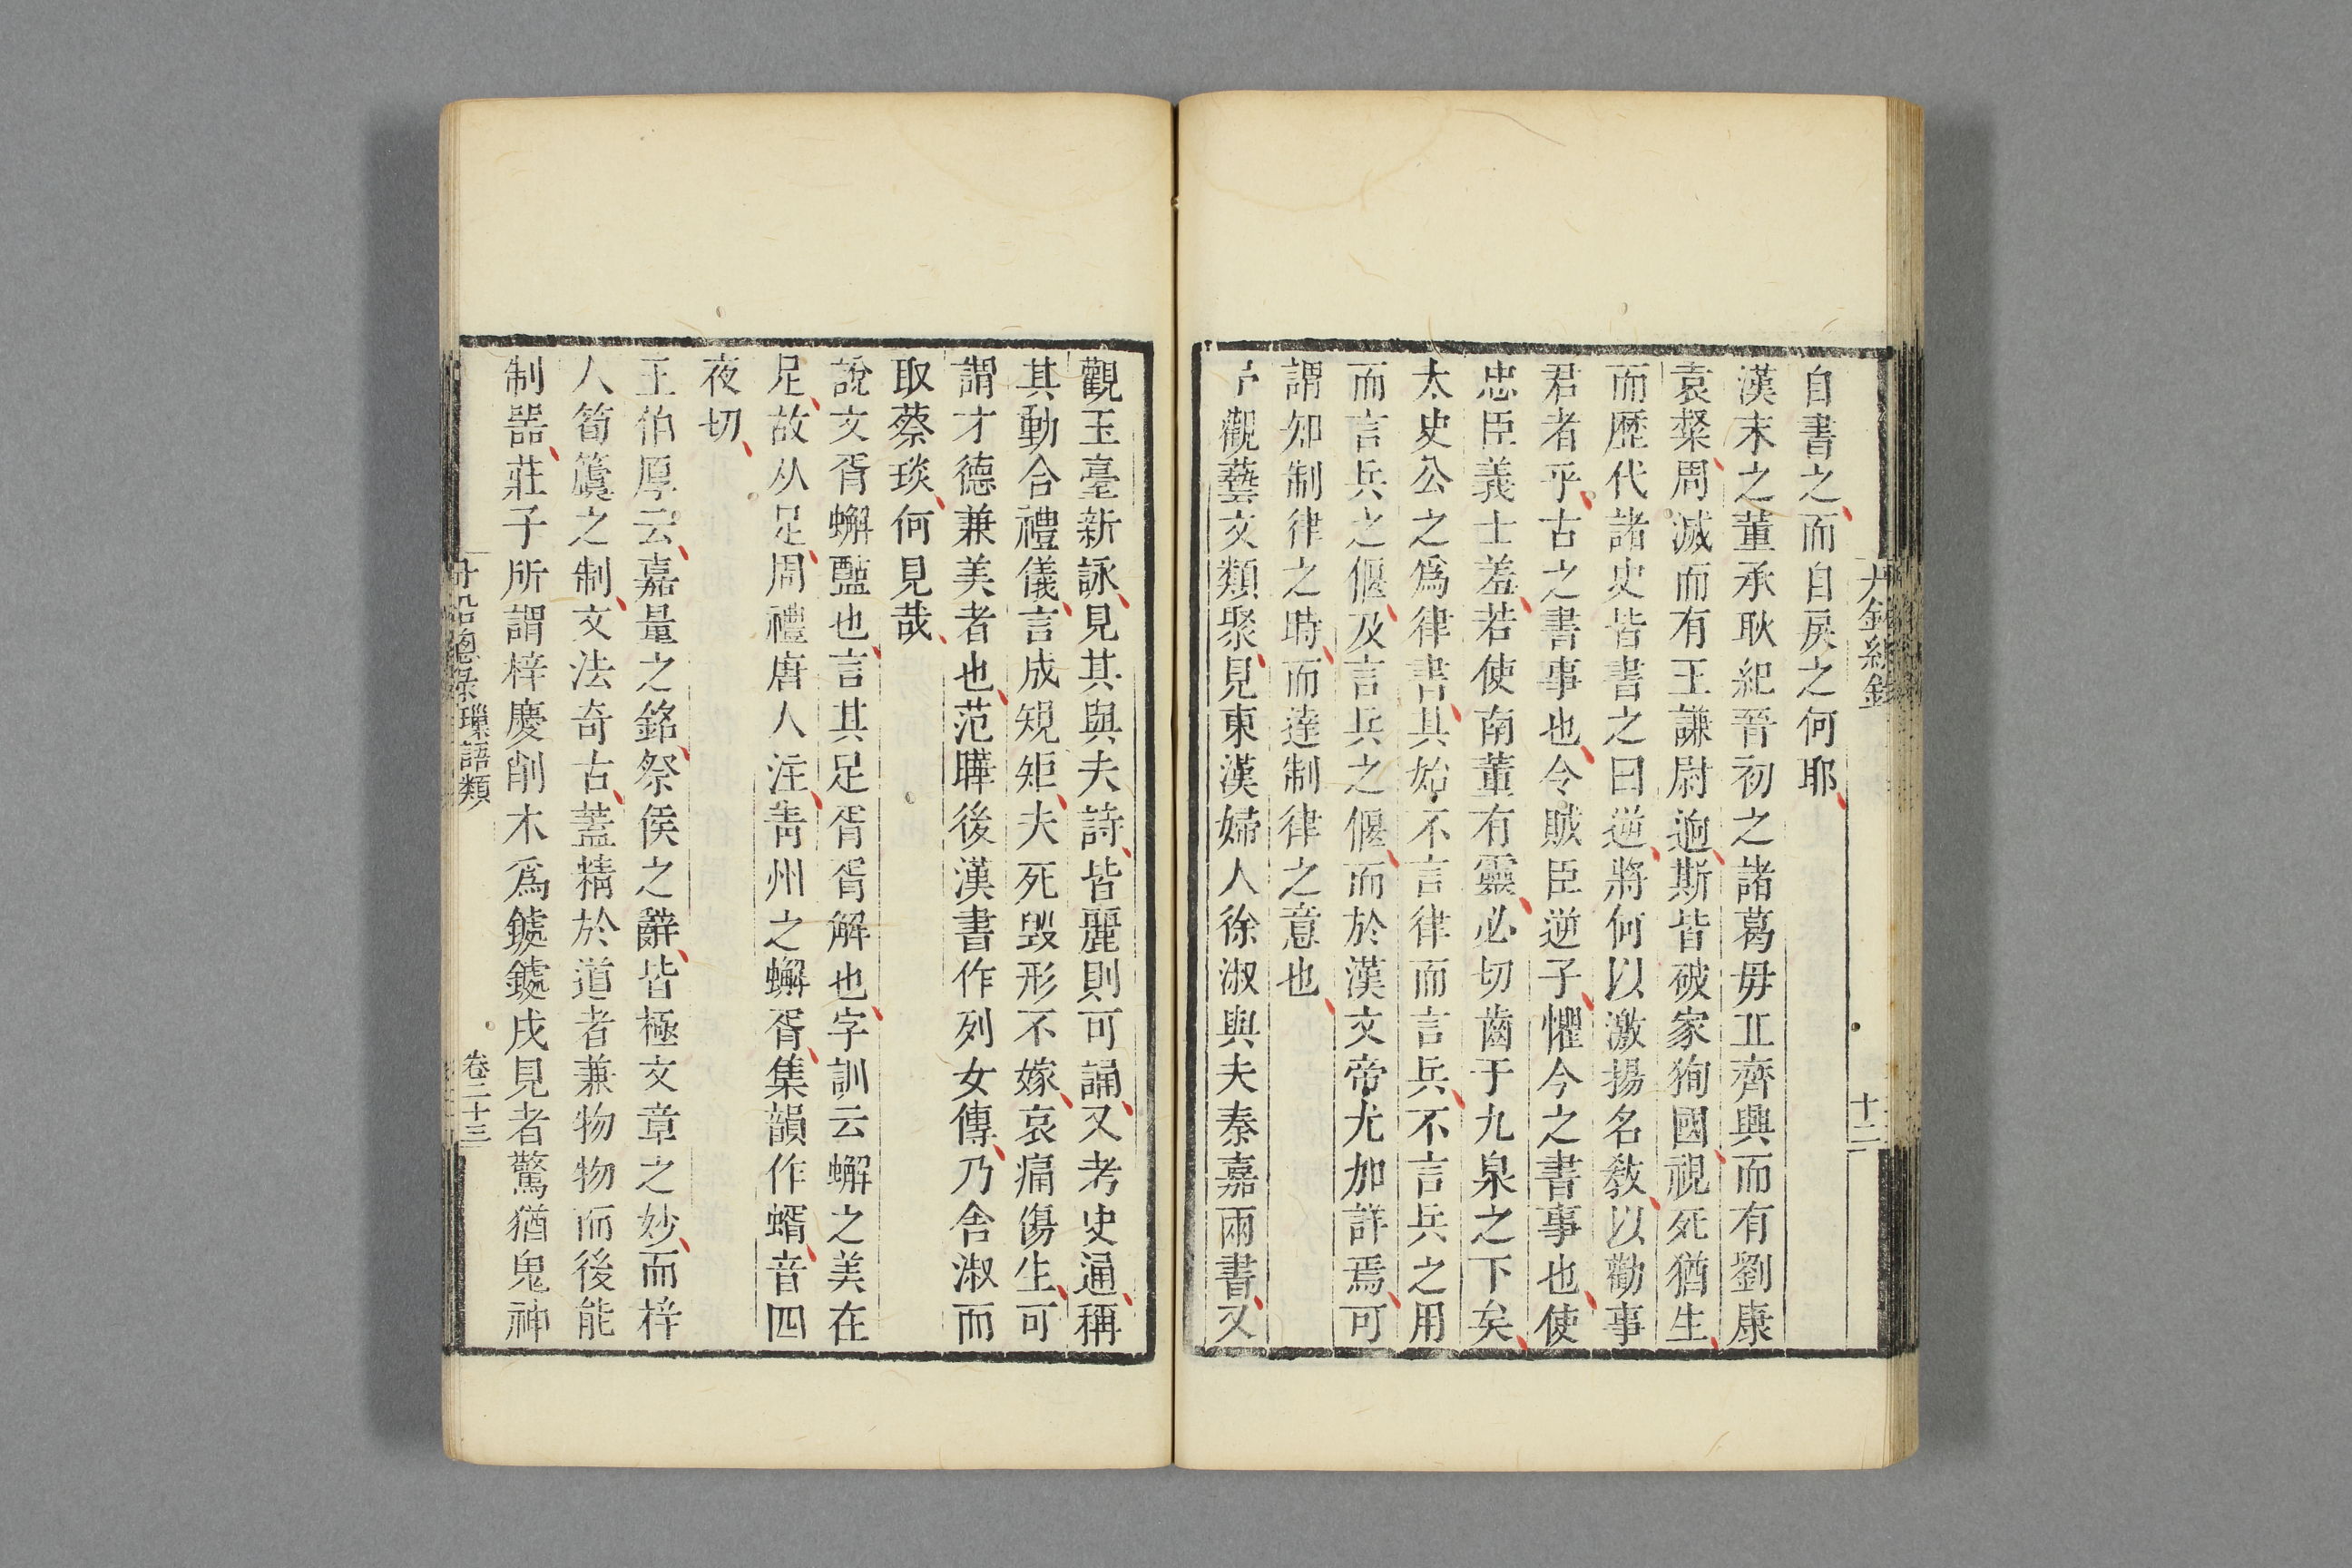 十二
自書之而自戾之何耶
漢末之董承耿紀晉初之諸葛毋丘齊興而有劉康
袁粲周滅而有王謙尉逈斯皆破家狥國視死猶生
而歷代諸史皆書之曰逆將何以激揚名敎以勸事
君者乎古之書事也令賊臣逆子懼今之書事也使
忠臣義士羞若使南董有靈必切齒于九泉之下矣
太史公之爲律書其始不言律而言兵不言兵之用
而言兵之偃及言兵之偃而於漢文帝尤加詳焉可
謂知制律之時而達制律之意也
予觀藝文類聚見東漢婦人徐淑與夫秦嘉兩書又
觀玉臺新詠見其與夫詩皆麗則可誦又考史通稱
其動合禮儀言成規矩夫死毀形不嫁哀痛傷生可
謂才德兼美者也范曄後漢書作列女傳乃舍淑而
取蔡琰何見哉
說文胥蠏醢也言其足胥胥解也字訓云蠏之美在
足故从足周禮唐人注靑州之蠏胥集韻作蝑音四
夜切
王伯厚云嘉量之銘祭侯之辭皆極文章之妙而梓
人筍簴之制文法奇古蓋精於道者兼物物而後能
制噐莊子所謂梓慶削木爲鐻鐻成見者驚猶鬼神
璅語類 卷二十三